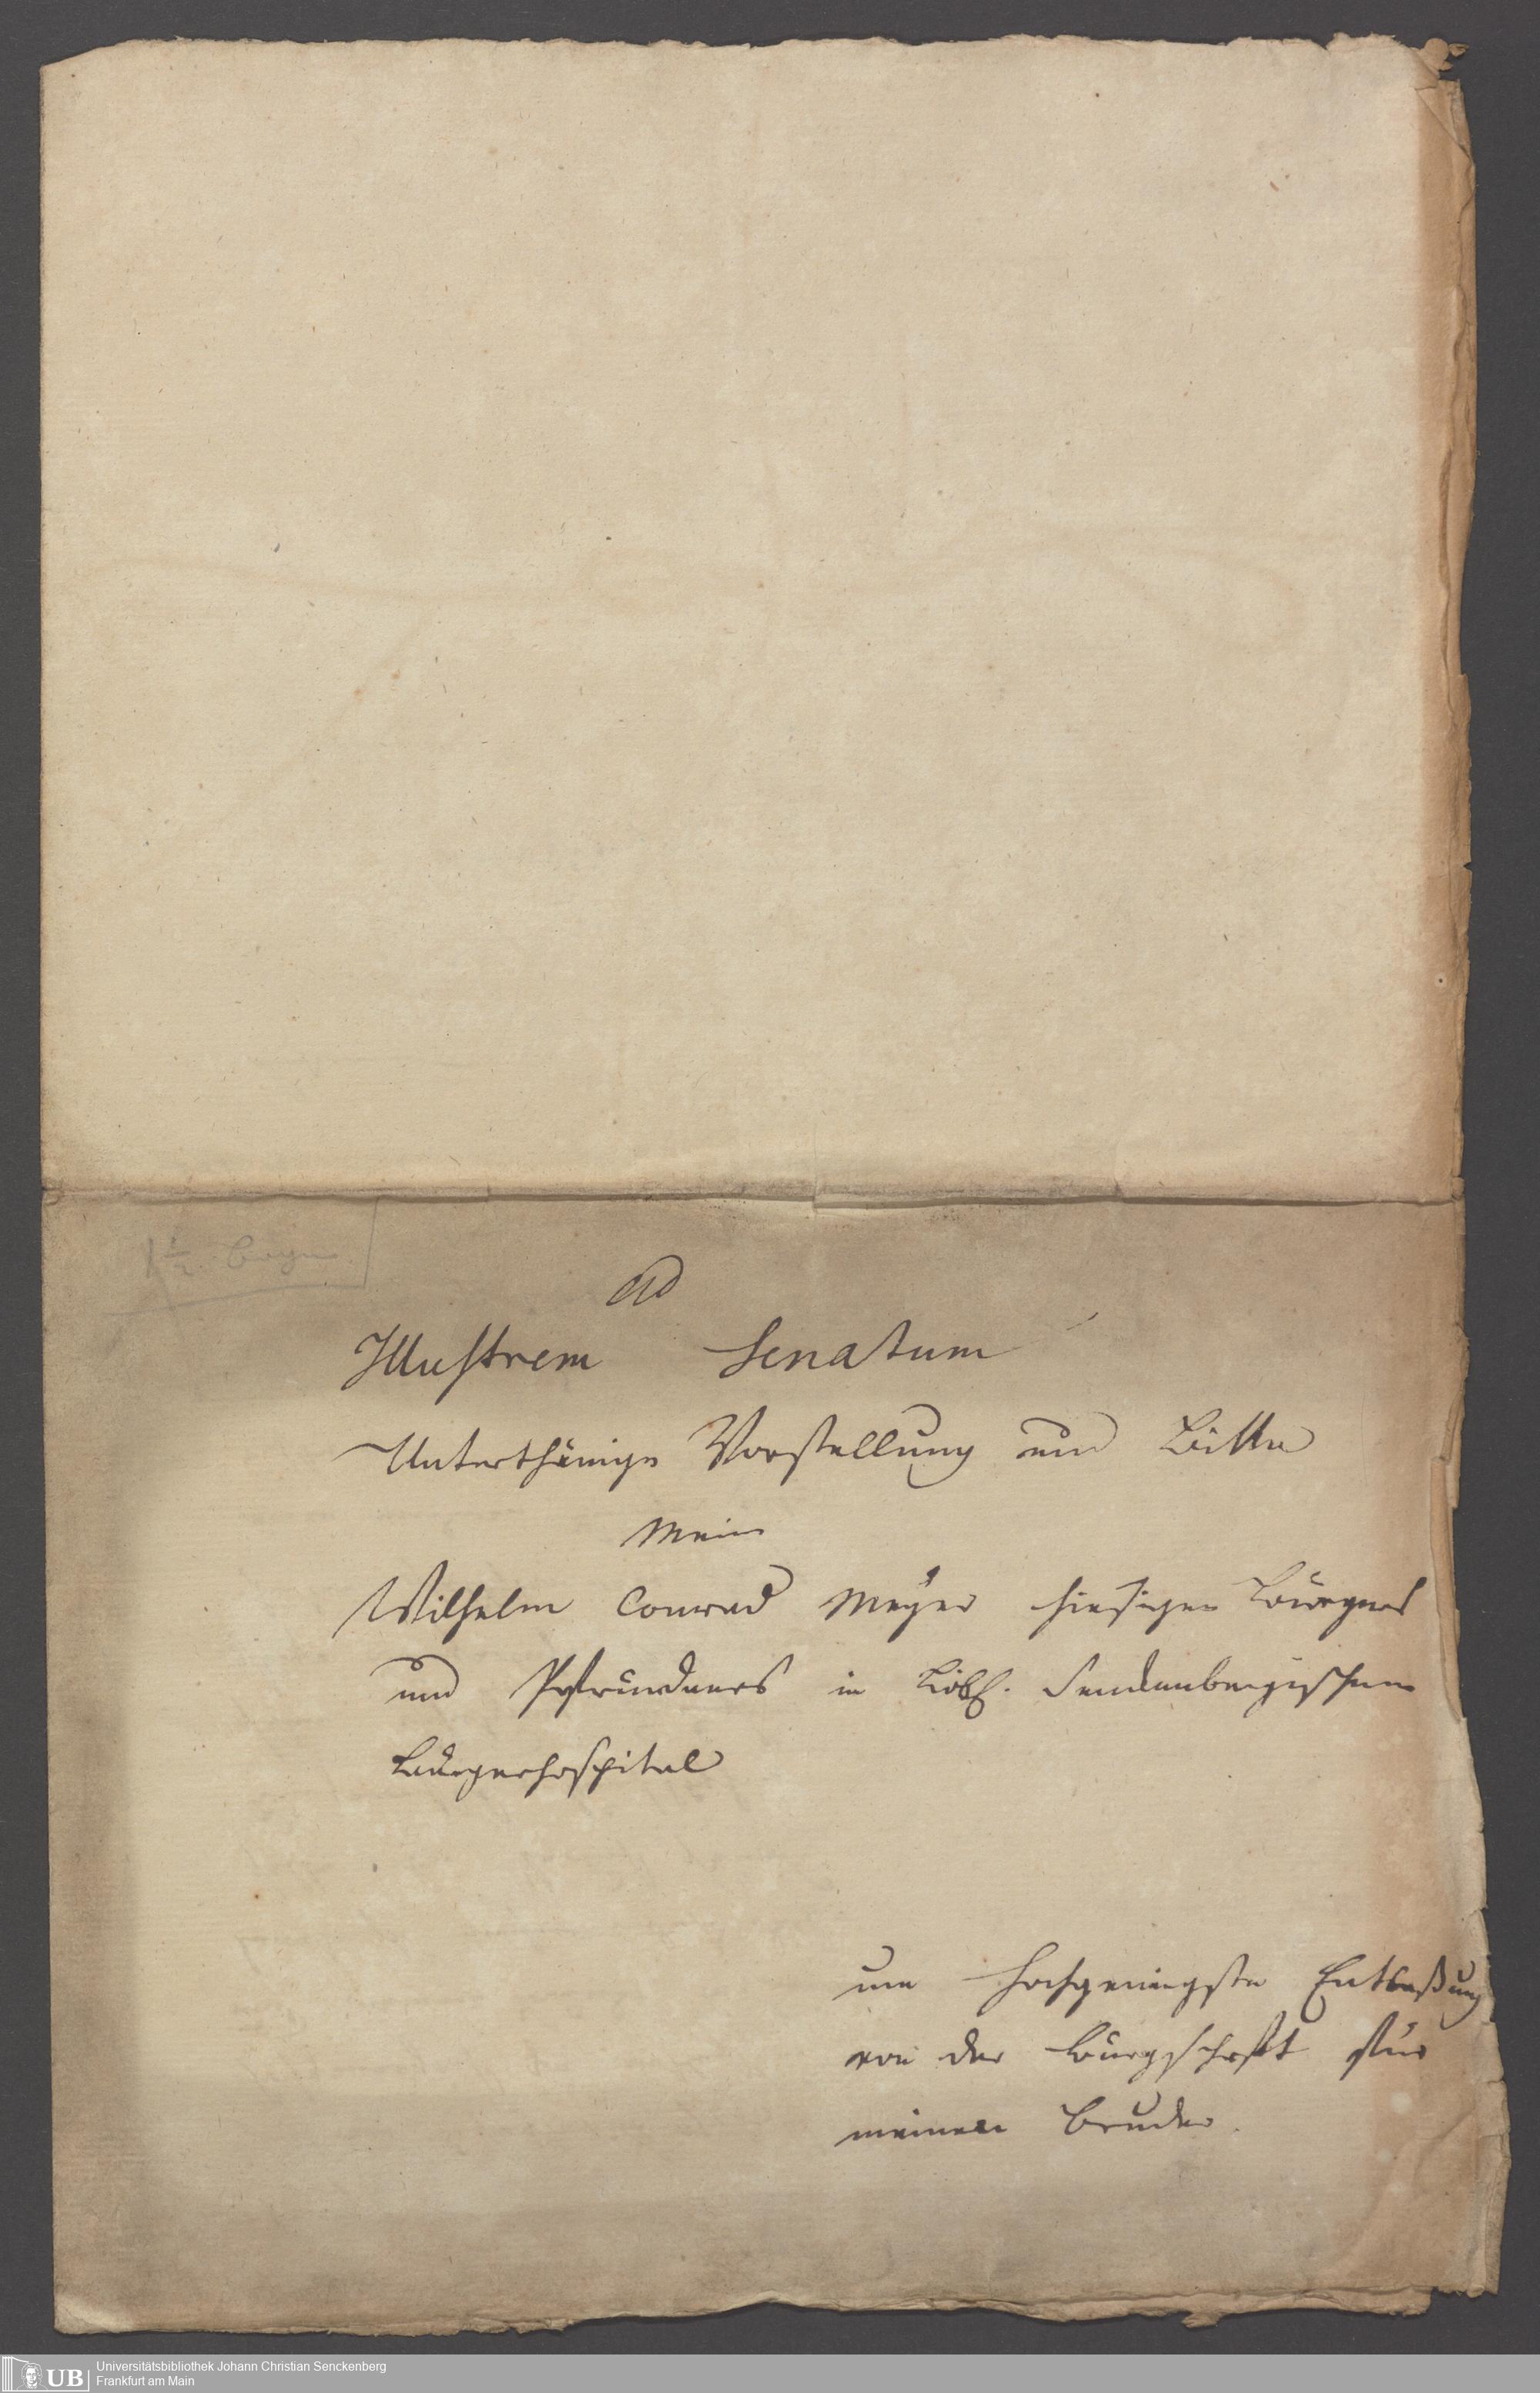 1 1/2 Bogen
Ad
Illustrem Senatum
Unterthänige Vorstellung und Bitte
Mein
Wilhelm Conrad Meyer hiesigen Bürgers
und Pfründners in Löbl. Senckenbergischen
Bürgerhospital
um hochgeneigteste Entlaßung
von der Bürgschaft für
meinen Bruder.
UB Universitätsbibliothek Johann Christian Senckenberg
Frankfurt am Main